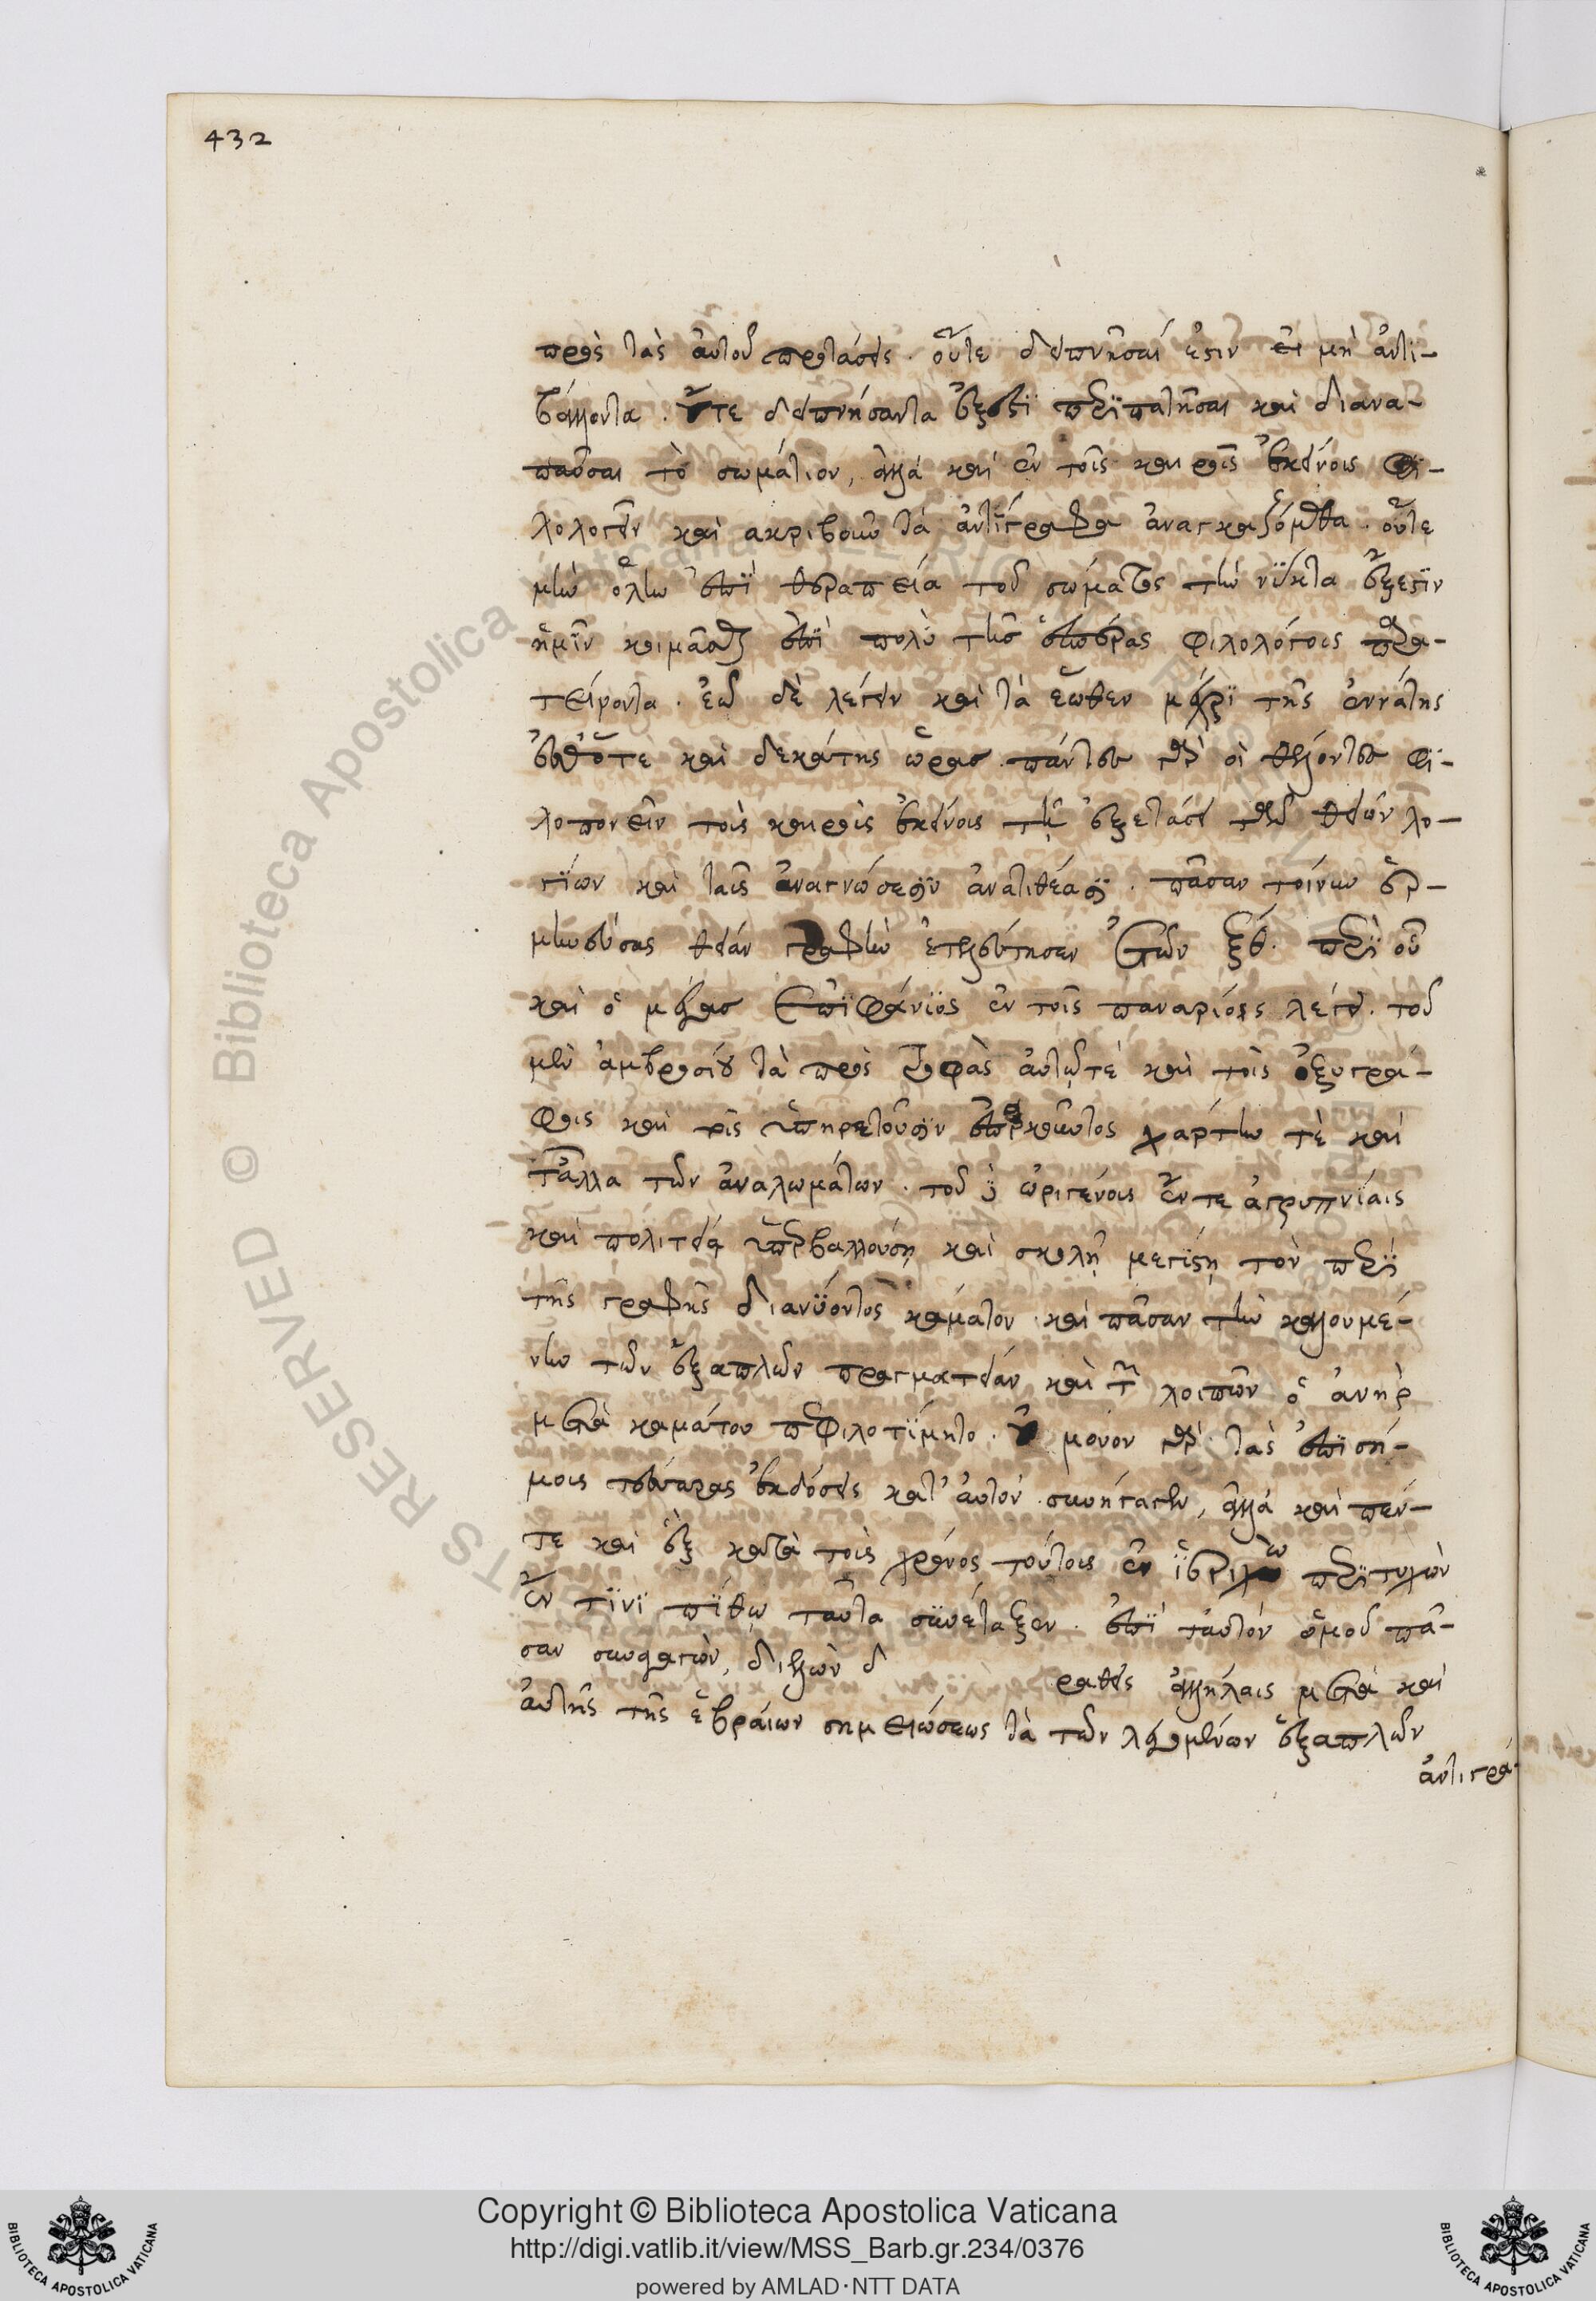 432
πρὸς τὰς αὐτοῦ προτάσεις. οὔτε δειπνῆσαί ἐστιν εἰ μὴ ἀντι-
βάλλοντα. οὔτε δειπνήσαντα ἔξεστι περϊπατῆσαι καὶ διανα-
παῦσαι τὸ σωμάτιον, ἀλλὰ καὶ ἐν τοῖς καιροῖς ἐκείνοις φϊ-
λολογεῖν καὶ ακριβοῦν τὰ ἀντίγραφα ἀναγκαζόμεθα. οὔτε
μὴν ὅλην ἐπὶ θεραπεία τοῦ σώματος τὴν νύκτα ἔξεστϊν
ἡμῖν κοιμᾶσθαι ἐπὶ πολὺ τῆς ἑσπέρας φιλολόγοις παρα-
τείνοντα. ἐῶ δὲ λέγειν καὶ τὰ ἕωθεν μέχρϊ τῆς ἐννάτης
ἔσθ' ὅτε καὶ δεκάτης ὥρας. πάντες γὰρ οἱ θέλοντες φϊ-
λοπονεῖν τοὶς καιροὶς ἐκείνοις τῇ ἐξετάσει τῶν θείων λο-
γϊων καὶ ταῖς ἀναγνώσεσϊν ἀνατιθέασϊ. πᾶσαν τοίνυν ἑρ-
μηνεύσας θείαν γραφὴν ἐτελεύτησεν ἐτῶν ξθ. περϊ οὗ
καὶ ὁ μέγας Ἐπϊφάνϊος ἐν τοῖς παναρίοις λέγει. τοῦ
μὲν ἀμβροσίου τὰ πρὸς τροφὰς αὐτῷ τὲ καὶ τοῖς ὀξυγρά-
φοις καὶ τοῖς ὑπηρετοῦσϊν ἐπαρκοῦντος χάρτην τὲ καὶ
τἄλλα τῶν ἀναλωμάτων. τοῦ δὲ ὠριγένοις ἔν τε ἀγρυπνϊαις
καὶ πολιτείᾳ ὑπερβαλλούσῃ καὶ σχολῇ μεγϊστῃ τὸν περὶ
τῆς γραφῆς διανϋοντος κάματον. καὶ πᾶσαν τὴν καλουμέ-
νην τῶν ἑξαπλῶν πραγματείαν καὶ τῶν λοιπῶν ὁ ἀνὴρ
μετὰ καμάτου πεφιλοτϊμητο. οὐ μόνον γὰρ τὰς ἐπϊσή-
μοις τέσσαρας ἐκδόσεις κατ' αὐτὸν συνήγαγεν, ἀλλὰ καὶ πέν-
τε καὶ ἓξ κατὰ τοὶς χρόνος τούτοις ἐν ϊεριχῶ περϊτυχὼν
ἔν τϊνϊ πϊθῳ ταῦτα συνέταξεν. ἐπϊ ταυτὸν ὁμοῦ πᾶ-
σαν συναγαγὼν, διελὼν
ραθεὶς ἀλλήλαις μετὰ καὶ
αὐτῆς τῆς ἑβραίων σημειώσεως τὰ τῶν λεγομένων ἑξαπλῶν
ἀντιγρά-
Copyright © Biblioteca Apostolica Vaticana
http://digi.vatlib.it/view/MSS_Barb.gr.234/0376
powered by AMLAD·NTT DATA